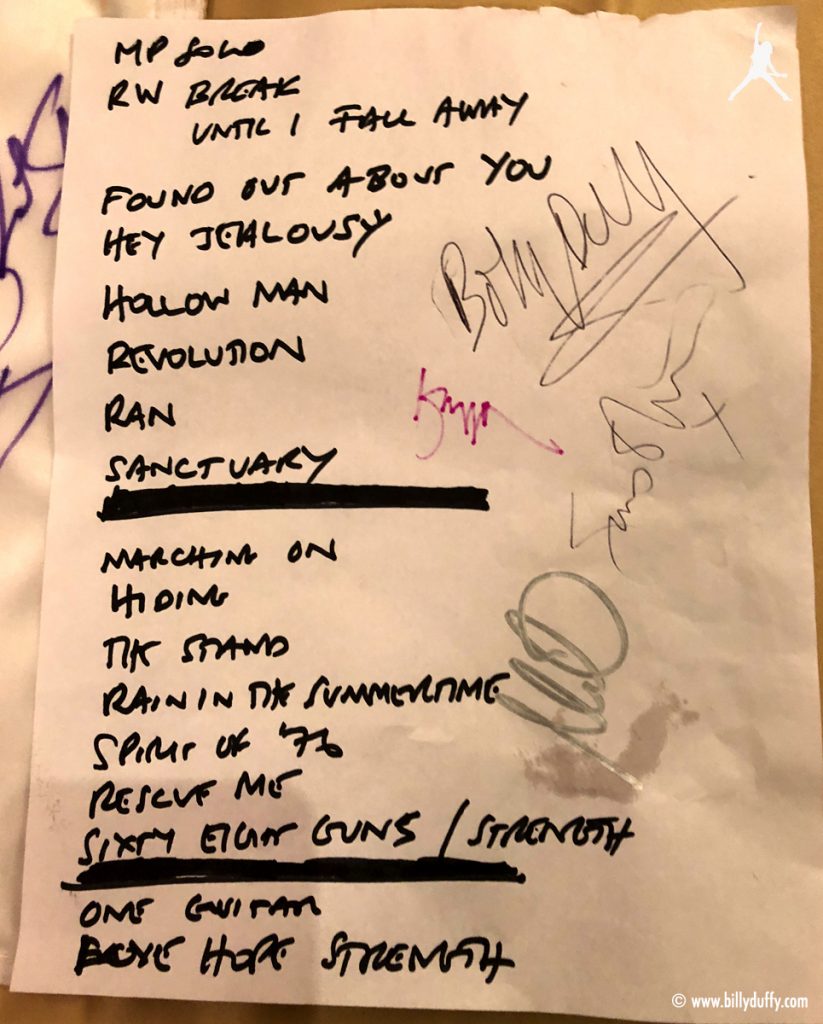 MP SOLO
RW BREAK
UNTIL I FALL AWAY
FOUND OUT ABOUT YOU
HEY JEALOUSY
HOLLOW MAN
REVOLUTION
RAN
SANCTUARY
MARCHING ON
HIDING
THE STAND
RAIN IN THE SUMMERTIME
SPIRIT OF '76
RESCUE ME
SIXTY EIGHT GUNS / STRENGTH
ONE GUITAR
LOVE HOPE STRENGTH
Billy Duffy
© www.billyduffy.com